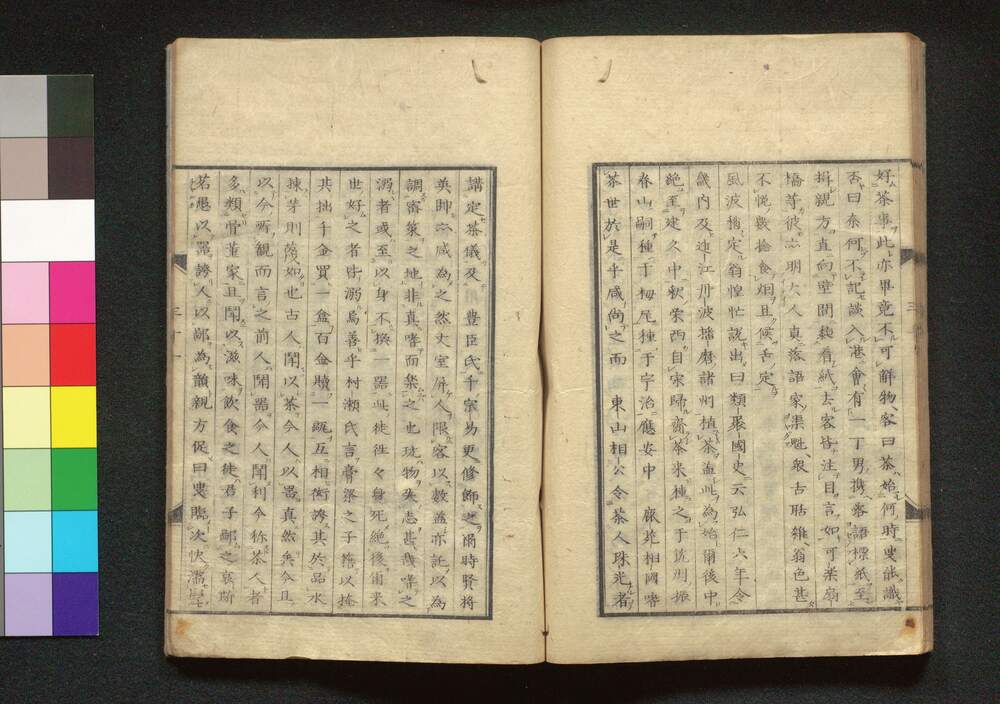 好茶事此亦畢竟不可解物客曰茶始何時叟能識
否曰奈何不記談入港會有一丁男携落語標紙至
揖親方直向壁間粘看紙去客皆注目言如可楽扇
橋等彼亦明大人真落語家渠魁般古聒雑翁色甚
不悦數撿食烟且候舌定
風波稍定翁惶忙説出曰類聚國史云弘仁六年令
畿内及近江丹波播磨諸州植茶盖此為始爾後中
絶至建久中釈栄西自宋歸齎茶米種之于筑州振
春山嗣種于栂尾種于宇治應安中 鹿苑相國嗜
茶世於是乎咸尚之而 東山相公令茶人珠光者
講定茶儀及 豊臣氏千宗易更修飾之爾時賢将
英帥亦咸為之然丈室屏人限客以數盖亦託以為
調密策之地非真嗜而集之也玩物失志甚哉嗜之
溺者或至以身不換一器此徒往々身死絶後甫来
世好之者皆溺焉善乎村瀬氏言膏粱之子藉以掩
其拙千金買一盒百金贖一甌互相衒誇其於品水
揀芽則蔭如也古人鬪以茶今人以器真然矣今且
以今所観而言之前人鬪器今人鬪利今称茶人者
多類骨董家且鬪以滋味飲食之徒君子鄙之哀斯
若愚以器誇人以鄙為韻親方促曰叟賺次快濡壁